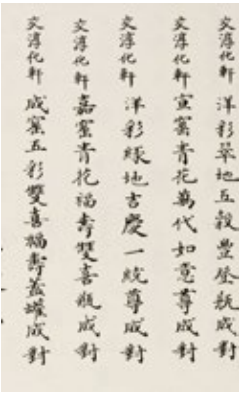 交淳化軒 洋彩翠地五穀豐登瓶成對
交淳化軒 宣窰青花萬代如意尊成對
交淳化軒 洋彩綠地吉慶一統尊成對
交淳化軒 嘉窰青花福壽雙喜瓶成對
交淳化軒 成窰五彩雙喜福壽蓋罐成對